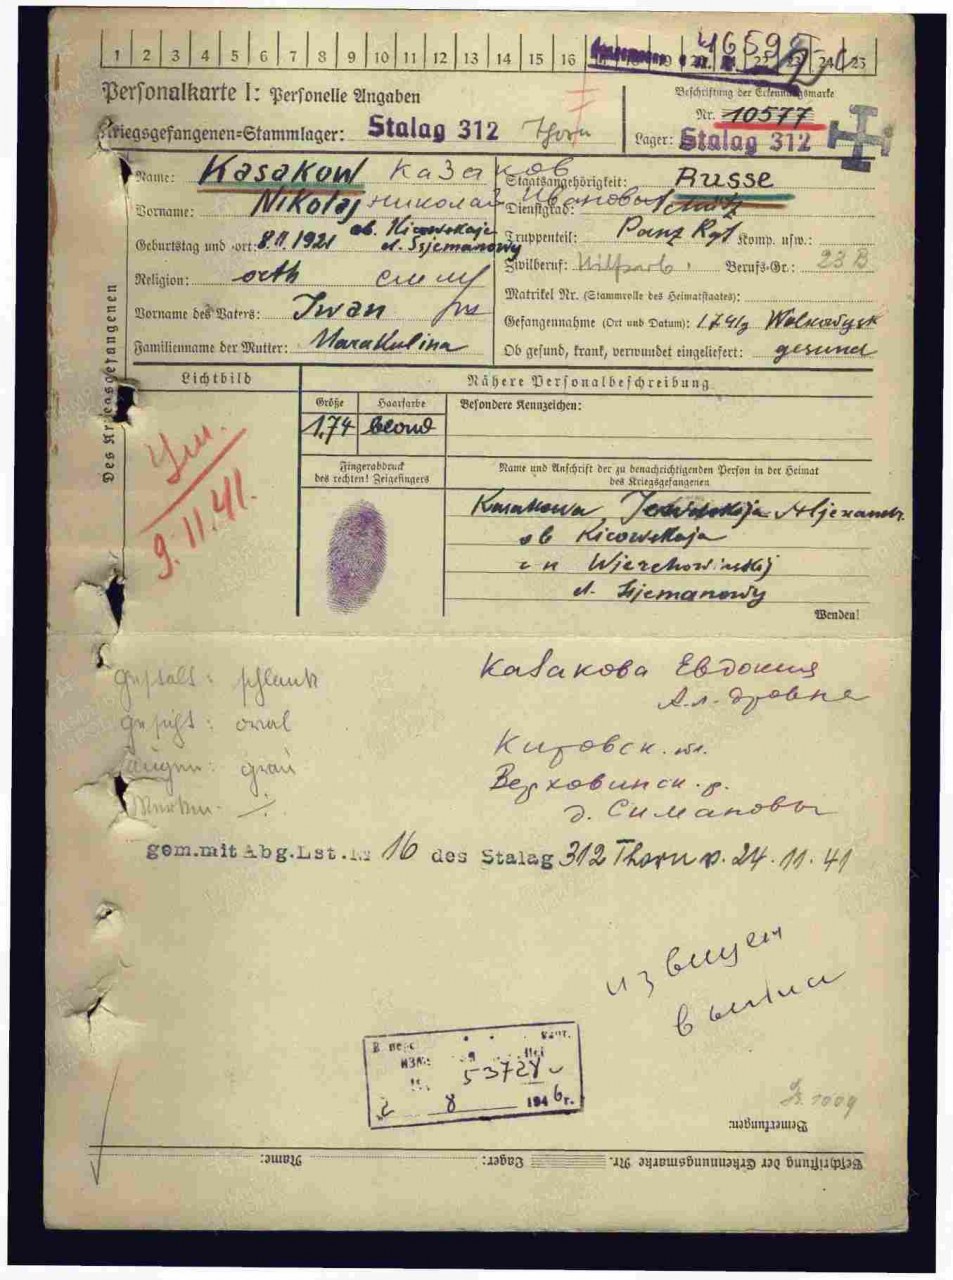 1 2 3 4 5 6 7 8 9 10 11 12 13 14 15 16 22 23 24 25
46592
Personalkarte I: Personelle Angaben
Beschriftung der Erkennungsmarke
Nr. 10577
Kriegsgefangenen-Stammlager: Stalag 312 Thorn
Lager: Stalag 312
Des Kriegsgefangenen
Name: Kasakow Казаков
Staatsangehörigkeit: Russe
Vorname: Nikolaj Николай Иванович
Dienstgrad: Schütz
Geburtstag und -ort: 8.11.1921 ob. Kirowskaja d. Ssjemanowy
Truppenteil: Panz Rgt Komp. usw.:
Zivilberuf: Hilfsarb. Berufs-Gr.: 23 B
Religion: orth
Matrikel Nr. (Stammrolle des Heimatstaates):
Vorname des Vaters: Iwan
Gefangennahme (Ort und Datum): 1.7.41 Wolkowysk
Familienname der Mutter: Marakulina
Ob gesund, krank, verwundet eingeliefert: gesund
Lichtbild
Nähere Personalbeschreibung
Größe Haarfarbe Besondere Kennzeichen:
1,74 blond
Ум.
9.11.41.
Fingerabdruck
des rechten! Zeigefingers
Name und Anschrift der zu benachrichtigenden Person in der Heimat
des Kriegsgefangenen
Kasakowa Aljexandr.
ob Kirowskaja
Wjerchowinskij
d. Ssjemanowy
Wenden!
Gestalt: schlank
Gesicht: oval
Augen: grau
Merkm. ./.
Казакова Евдокия
Ал-дровна
Кировск. обл.
Верховинск. р.
д. Симановы
gem.mit Abg.Lst.Nr 16 des Stalag 312 Thorn v. 24.11.41
извещен
В перс
53728
2 8 1946г.
Bemerkungen:
Beschriftung der Erkennungsmarke Nr. Lager: Name: